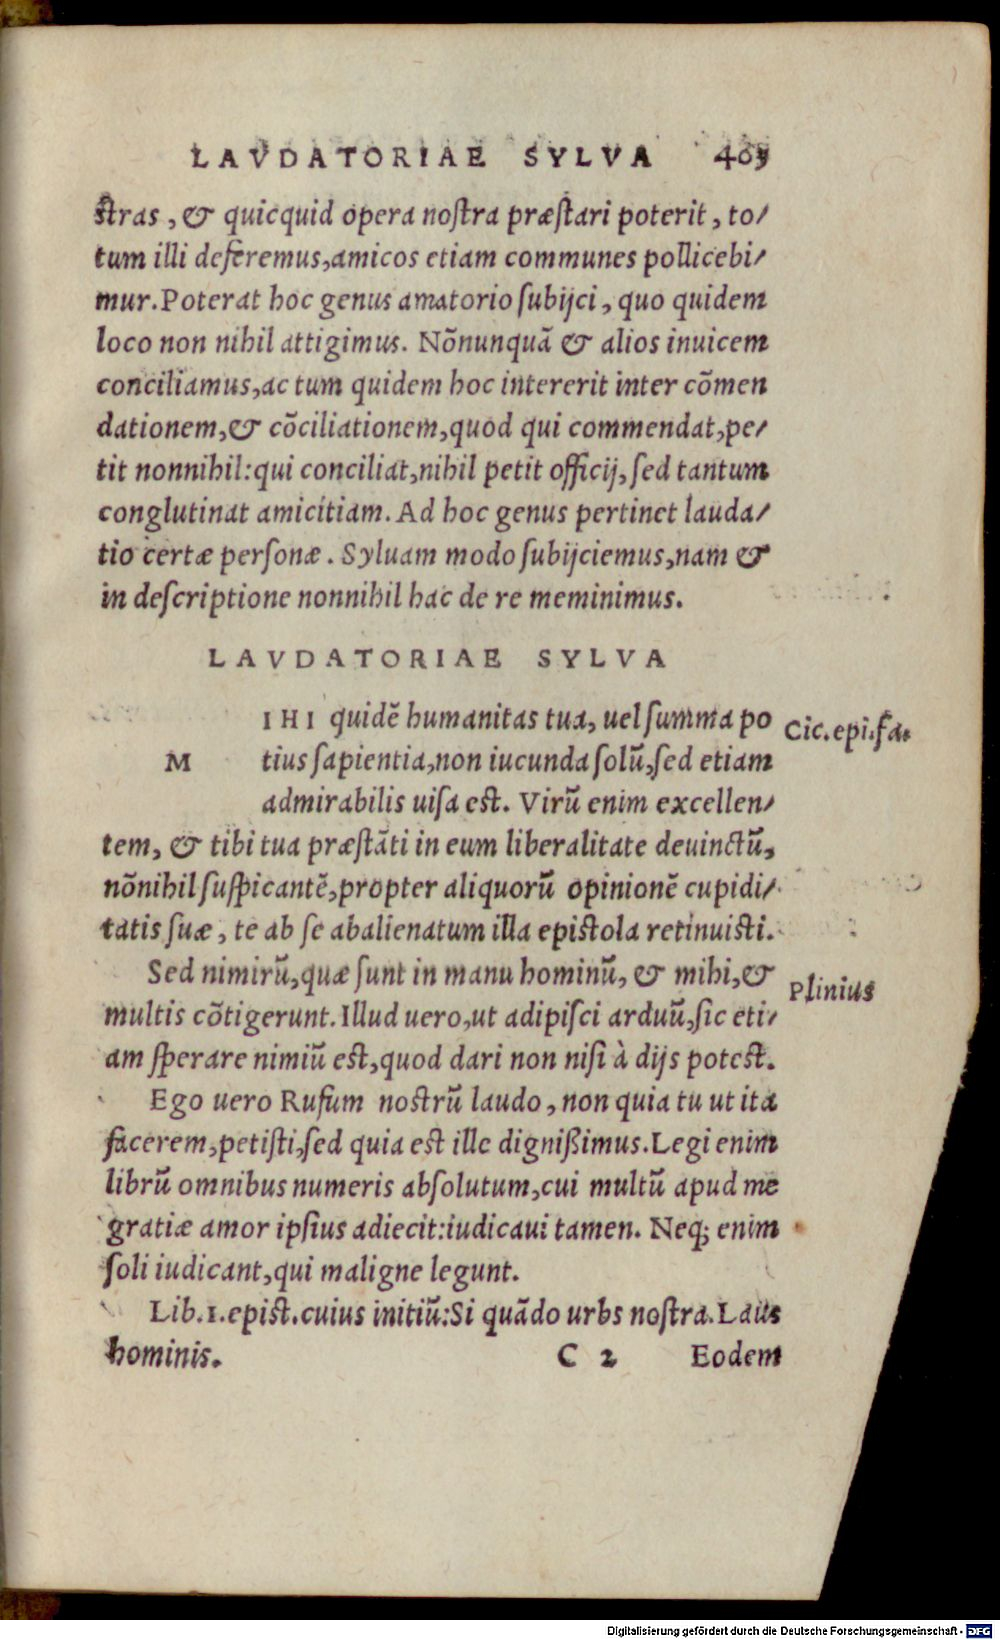 LAVDATORIAE SYLVA 403
ſtras, & quicquid opera noſtra præſtari poterit, to/
tum illi deferemus,amicos etiam communes pollicebi/
mur.Poterat hoc genus amatorio ſubijci, quo quidem
loco non nihil attigimus. Nõnunquã & alios inuicem
conciliamus,ac tum quidem hoc intererit inter cõmen
dationem,& cõciliationem,quod qui commendat,pe/
tit nonnihil:qui conciliat,nihil petit officij, ſed tantum
conglutinat amicitiam. Ad hoc genus pertinet lauda/
tio certæ perſonæ. Syluam modo ſubijciemus,nam &
in deſcriptione nonnihil hac de re meminimus.
LAVDATORIAE SYLVA
M IHI quidẽ humanitas tua, uel ſumma po
tius ſapientia,non iucunda ſolũ,ſed etiam
admirabilis uiſa est. Virũ enim excellen/
tem, & tibi tua præſtãti in eum liberalitate deuinctũ,
nõnihil ſuſpicantẽ,propter aliquorũ opinionẽ cupidi/
tatis ſuæ, te ab ſe abalienatum illa epistola retinuisti.
Cic.epi.fa.
Sed nimirũ,quæ ſunt in manu hominũ, & mihi,&
multis cõtigerunt.Illud uero,ut adipiſci arduũ,ſic eti/
am ſperare nimiũ est,quod dari non niſi à dijs potest.
Plinius
Ego uero Rufum nostrũ laudo, non quia tu ut ita
facerem,petiſti,ſed quia est ille dignißimus.Legi enim
librũ omnibus numeris abſolutum,cui multũ apud me
gratiæ amor ipſius adiecit:iudicaui tamen. Neq; enim
ſoli iudicant,qui maligne legunt.
Lib.1.epist.cuius initiũ:Si quãdo urbs noſtra.Laus
hominis. C 2 Eodem
Digitalisierung gefördert durch die Deutsche Forschungsgemeinschaft - DFG